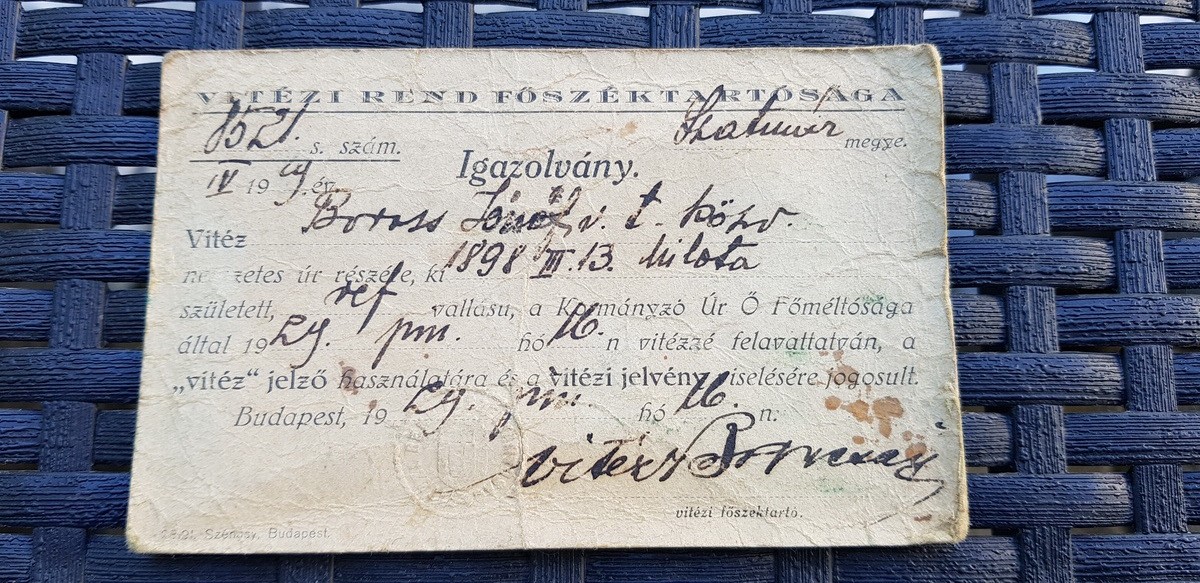 VITÉZI REND FŐSZÉKTARTÓSÁGA
s. szám.
Szatmár megye.
Igazolvány.
IV 1929. év.
Vitéz Boross v. t.
nemzetes úr részére, ki 1898 III. 13. Milota
született, ref vallásu, a Kormányzó Úr Ő Főméltósága
által 1929. hó 16.-n vitézzé felavattatván, a
„vitéz" jelző használatára és a vitézi jelvény viselésére jogosult.
Budapest, 1929. hó 16. n.
vitéz
vitézi főszéktartó.
Szénásy, Budapest.